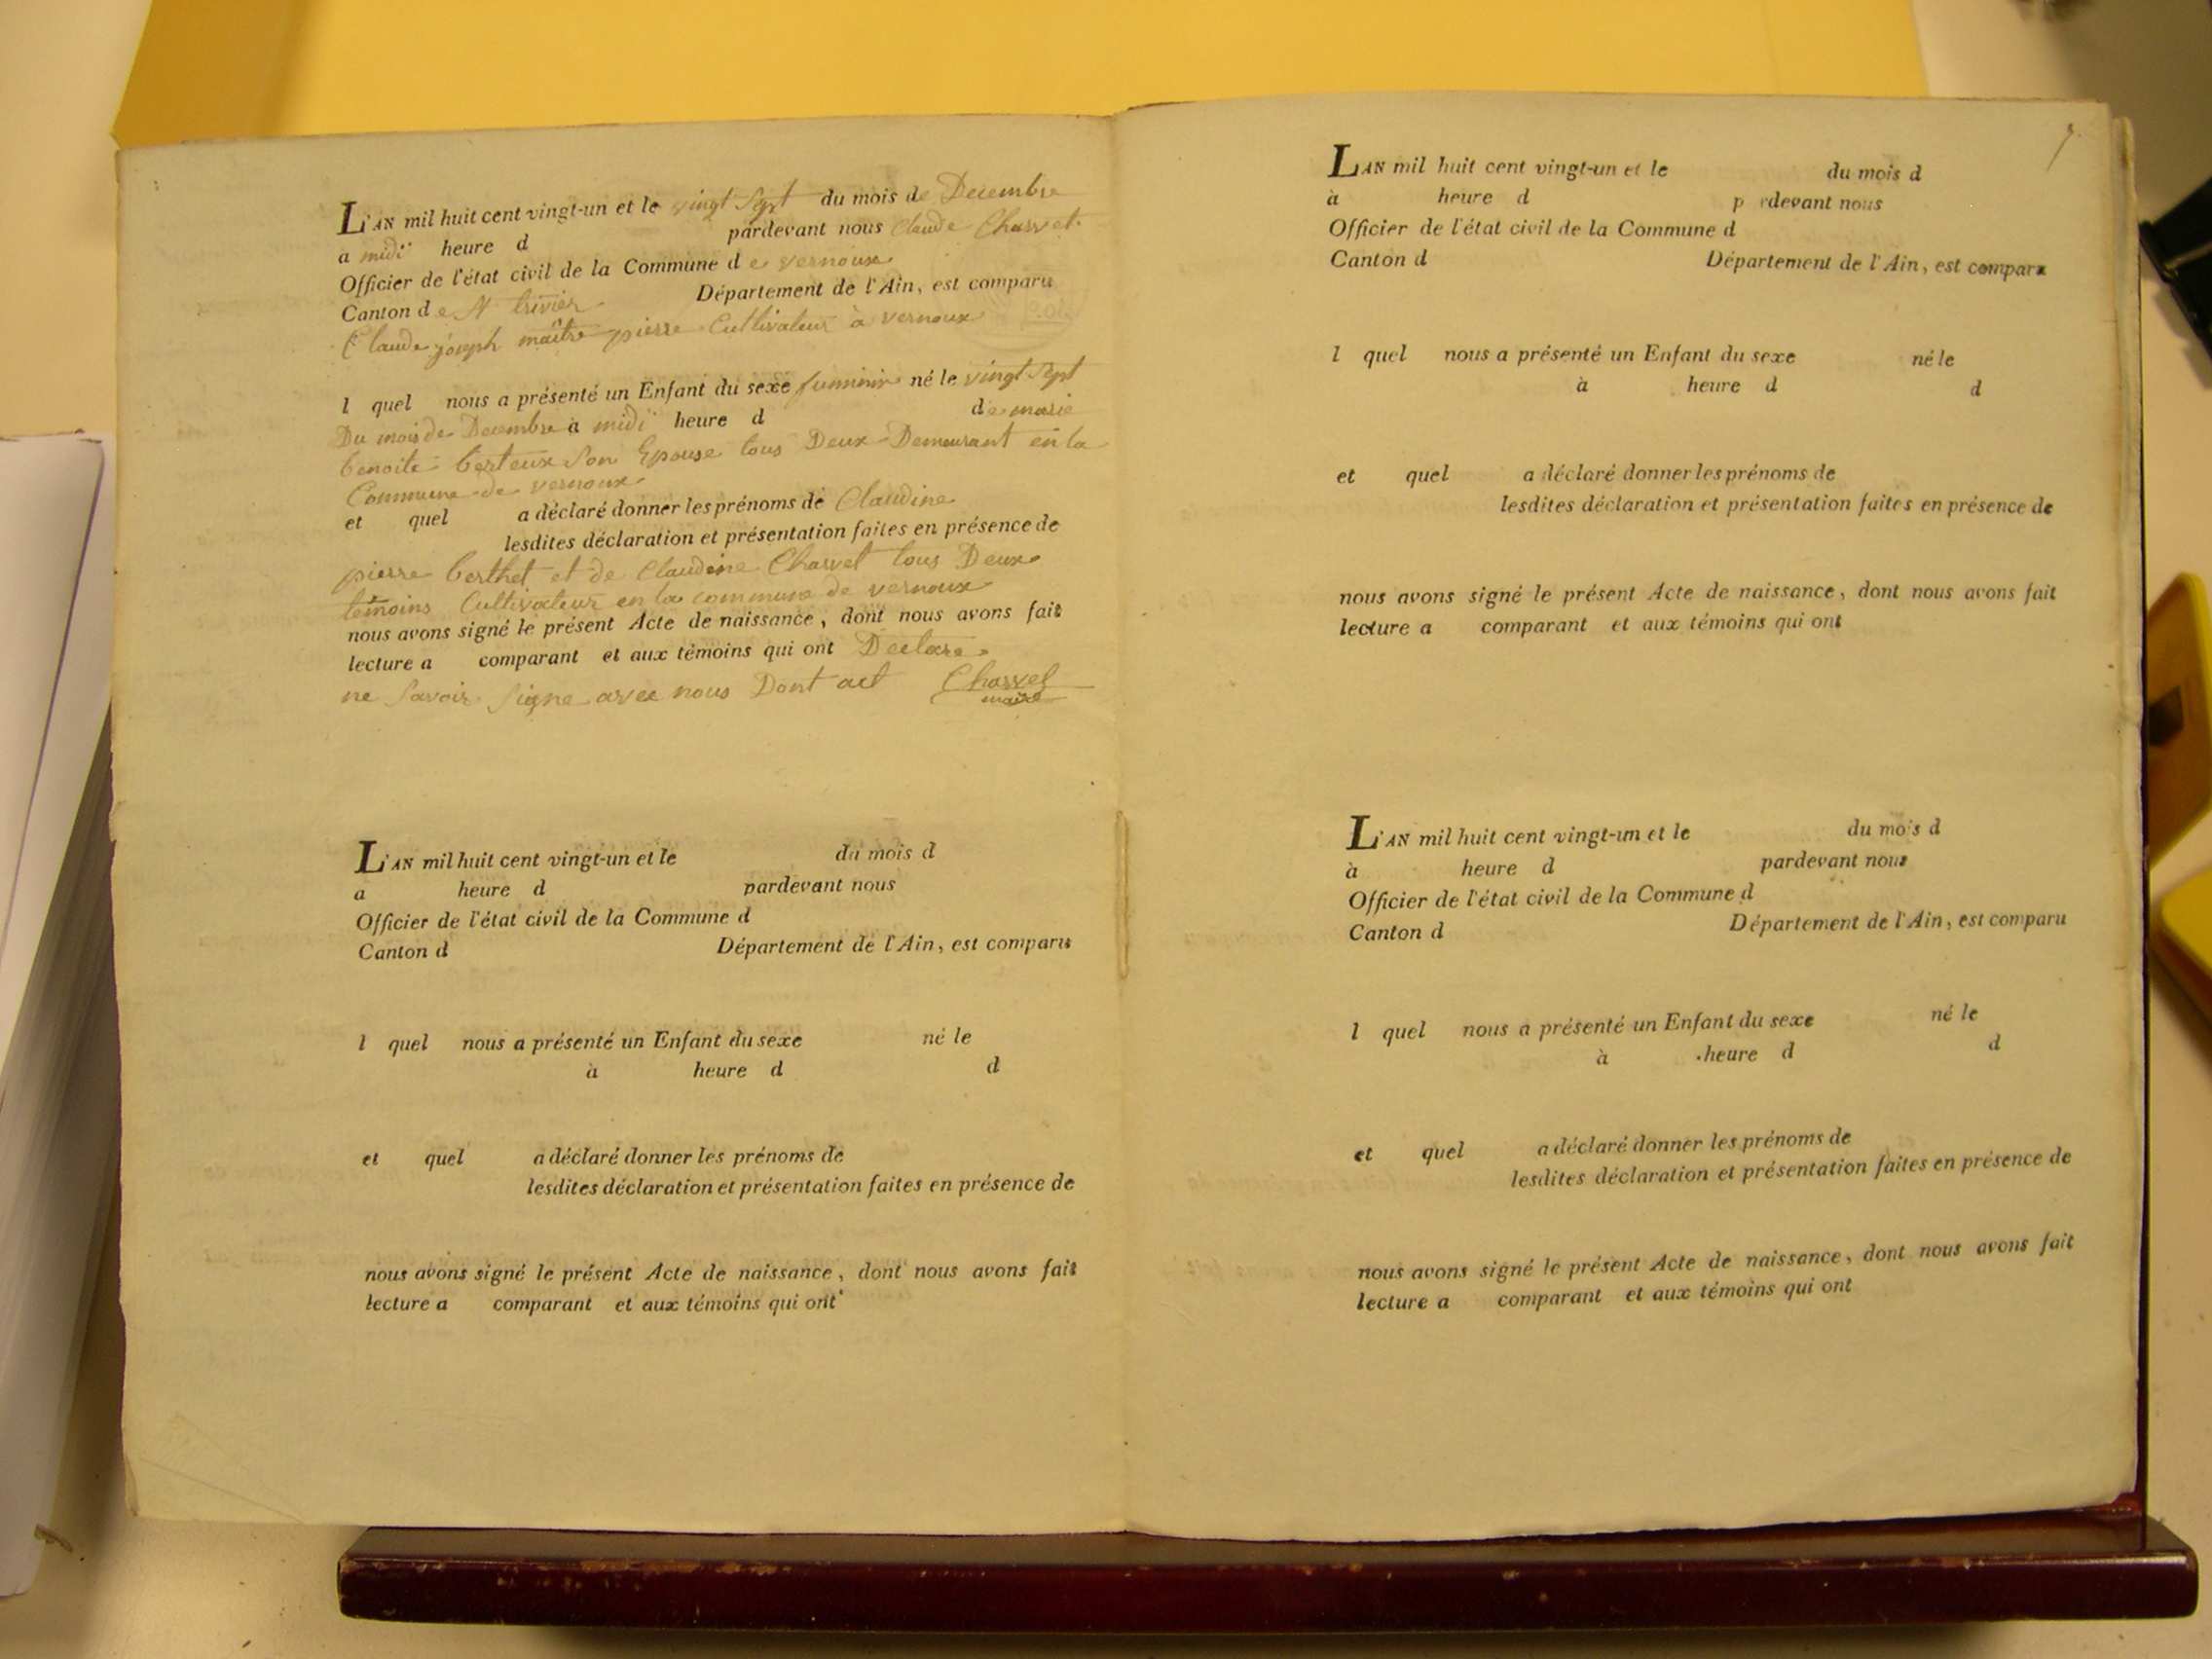 L'AN mil huit cent vingt-un et le vingt Sept du mois de Decembre
a midi heure d pardevant nous Claude Charvet
Officier de l'état civil de la Commune de vernoux
Canton de St trivier Département de l'Ain, est comparu
Claude joseph maître pierre Cultivateur à vernoux
l quel nous a présenté un Enfant du sexe feminin né le vingt Sept
Du mois de Decembre à midi heure d de marie
benoite berteux Son Epouse tous Deux Demeurant en la
Commune de vernoux
et quel a déclaré donner les prénoms de Claudine
lesdites déclaration et présentation faites en présence de
pierre berthet et de Claudine Charvet tous Deux
temoins Cultivateur en la commune de vernoux
nous avons signé le présent Acte de naissance, dont nous avons fait
lecture a comparant et aux témoins qui ont Declare
ne Savoir Signe avec nous Dont act Charvet
maire
L'AN mil huit cent vingt-un et le du mois d
a heure d pardevant nous
Officier de l'état civil de la Commune d
Canton d Département de l'Ain, est comparu
l quel nous a présenté un Enfant du sexe né le
à heure d d
et quel a déclaré donner les prénoms de
lesdites déclaration et présentation faites en présence de
nous avons signé le présent Acte de naissance, dont nous avons fait
lecture a comparant et aux témoins qui ont
LAN mil huit cent vingt-un et le du mois d
à heure d p rdevant nous
Officier de l'état civil de la Commune d
Canton d Département de l'Ain, est comparu
l quel nous a présenté un Enfant du sexe né le
à heure d d
et quel a déclaré donner les prénoms de
lesdites déclaration et présentation faites en présence de
nous avons signé le présent Acte de naissance, dont nous avons fait
lecture a comparant et aux témoins qui ont
L'AN mil huit cent vingt-un et le du mois d
à heure d pardevant nous
Officier de l'état civil de la Commune d
Canton d Département de l'Ain, est comparu
l quel nous a présenté un Enfant du sexe né le
à heure d d
et quel a déclaré donner les prénoms de
lesdites déclaration et présentation faites en présence de
nous avons signé le présent Acte de naissance, dont nous avons fait
lecture a comparant et aux témoins qui ont